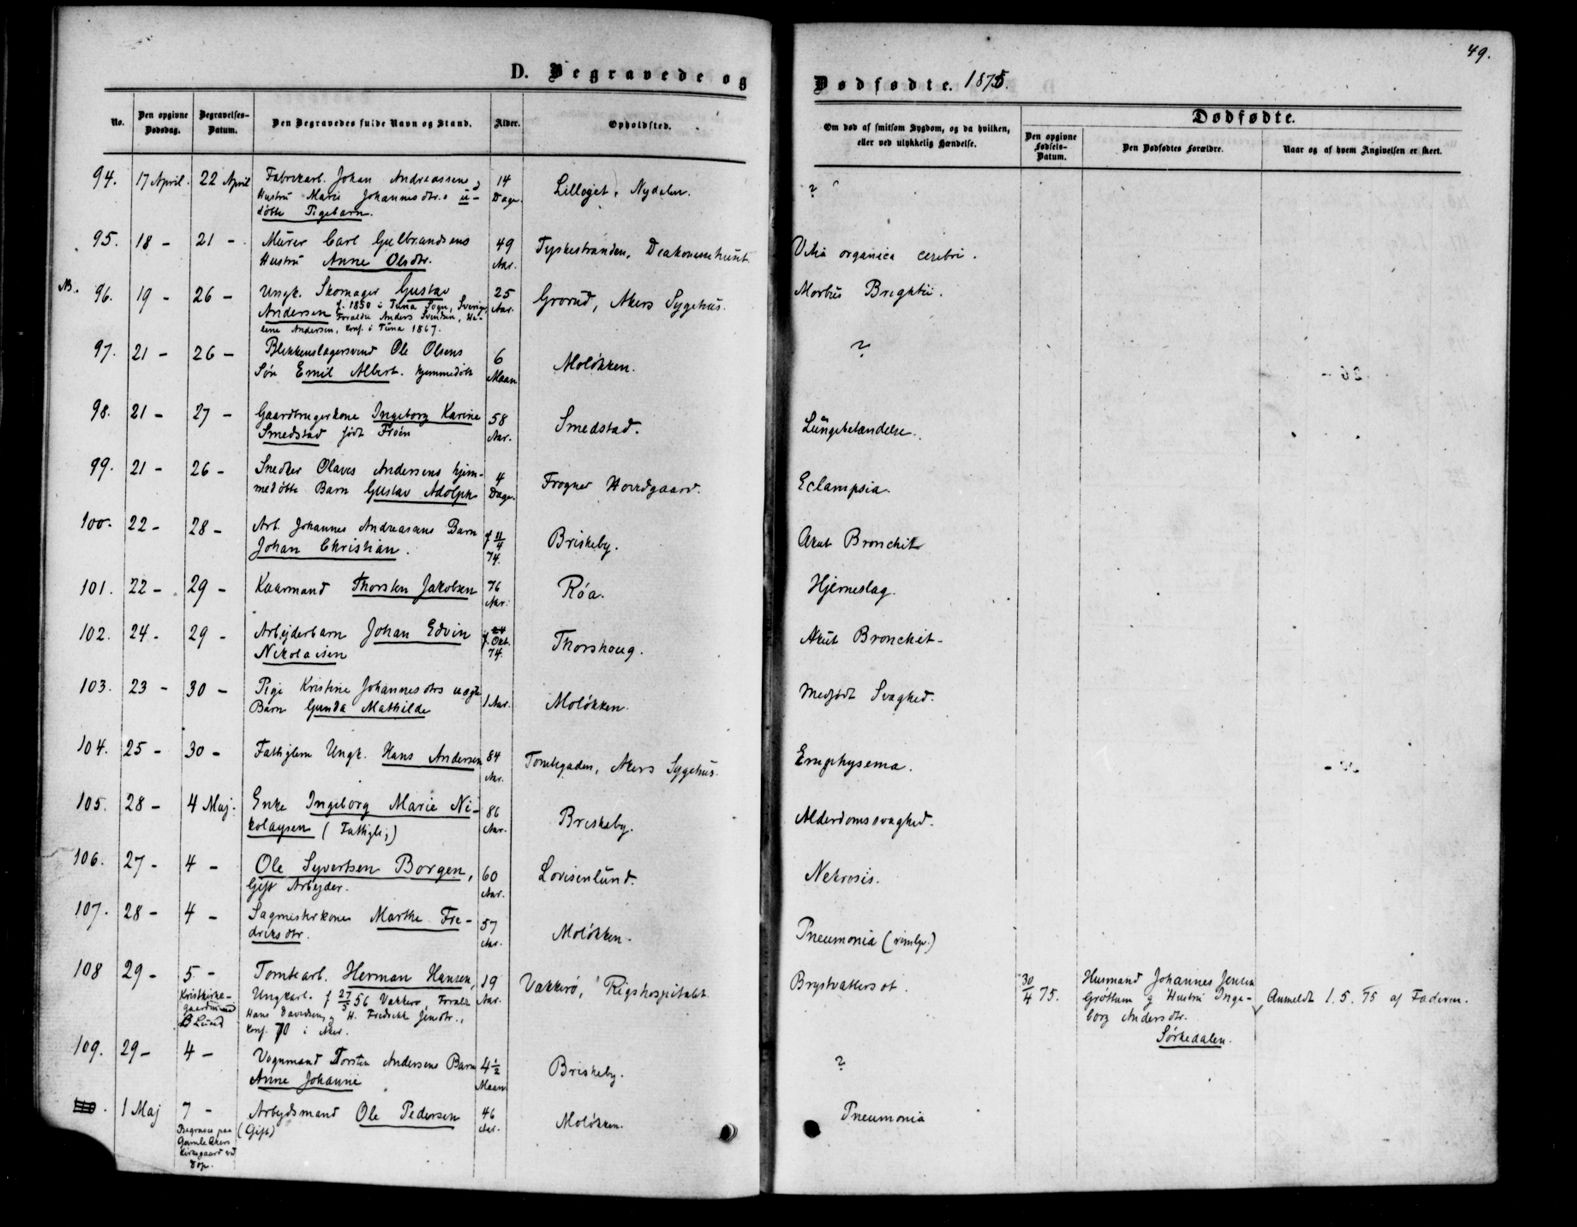 49.
D. Begravede og Dødfødte. 1875.
No. | Den opgivne Dødsdag. | Begravelses-Datum. | Den Begravedes fulde Navn og Stand. | Alder. | Opholdsted. | Om død af smitsom Sygdom, og da hvilken, eller ved ulykkelig Hændelse.
Dødfødte.
Den opgivne Fødsels-Datum. | Den Dødfødtes Forældre. | Naar og af hvem Angivelsen er skeet.
94. 17 April. 22 April Fabrikarb. Johan Andreassen 14 Lilloget, Nydalen. ?
Hustru Marie Johannesdtr.s u- Dage
døbte Pigebarn.
95. 18 - 21 - Murer Carl Gulbrandsens 49 Tyskestranden, Diakonissehuset. Vitia organica cerebri.
Hustru Anne Olsdtr. Aar.
NB. 96. 19 - 26 - Ungk. Skomager Gustav 25 Grorud, Akers Sygehus. Morbus Brightii.
Andersen f. 1850 i Tuna Sogn, Sverige, Aar.
Forældre Anders Svendsen,
Andersen, konf. i Tuna 1867.
97. 21 - 26 - Blikkenslagersvend Ole Olsens 6 Moløkken. ?
Søn Emil Albert. hjemmedøbt Maan
98. 21 - 27 - Gaardbrugerkone Ingeborg Karine 58 Smedstad. Lungebetændelse.
Smedstad født Frøen Aar.
99. 21 - 26 - Snedker Olaves Andersens hjem- 4 Frogner Hovedgaard. Eclampsia.
medøbte Barn Gustav Adolph Dage
100. 22 - 28 - Arb. Johannes Andreasens Barn f 11/4 74. Briskeby. Akut Bronchit
Johan Christian.
101. 22 - 29 - Kaarmand Thorsten Jakobsen 76 Aar. Røa. Hjerneslag.
102. 24 - 29 - Arbejderbarn Johan Edvin f. 24 Okt. 74. Thorshoug. Akut Bronchit-
Nikolaisen
103. 23 - 30 - Pige Kristine Johannesdtrs uægte 1 Aar. Moløkken. Medfødt Svaghed.
Barn Gunda Mathilde
104. 25 - 30 - Fattiglem Ungk. Hans Andersen 84 Aar. Tomtegaden, Akers Sygehus. Emphysema.
105. 28 - 4 Maj. Enke Ingeborg Marie Ni- 86 Briskeby. Alderdomssvaghed.
kolaysen (Fattigl.) Aar.
106. 27 - 4 - Ole Syvertsen Borgen, 60 Lovisenlund. Nekrosis.
Gift Arbejder. Aar.
107. 28 - 4 - Sagmesterkone Marthe Fre- 57 Moløkken. Pneumonia
driksdtr. Aar.
108 29 - 5 - Tomtearb. Herman Hansen, 19 Vækkerø, Rigshospitalet. Brystvattersot.
Kristkirke- Ungkarl. f 27/5 56 Vækkerø, Foræld. Aar.
gaarden Hans Davidsen og H. Fredrikke Jensdtr.,
konf. 70 i Aker.
30/4 75. Husmand Johannes Jensen Anmeldt 1. 5. 75 af Faderen.
Grøttum og Hustru Inge-
borg Andersdtr.
Sørkedalen.
109. 29 - 4 - Vognmand Torsten Andersens Barn 4½ Briskeby. ?
Anne Johanne Maan
110. 1 Maj 7 - Arbejdsmand Ole Pedersen 46 Moløkken. Pneumonia
Begravet paa (Gift) Aar.
Gamle Akers
Kirkegaard